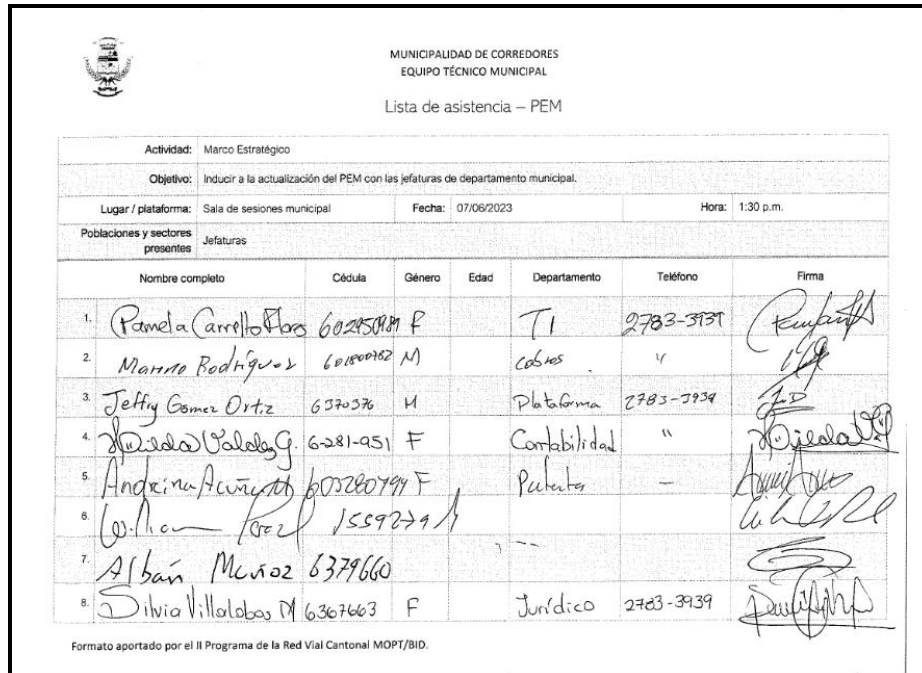 MUNICIPALIDAD DE CORREDORES
EQUIPO TÉCNICO MUNICIPAL
Lista de asistencia – PEM
Actividad: Marco Estratégico
Objetivo: Inducir a la actualización del PEM con las jefaturas de departamento municipal.
Lugar / plataforma: Sala de sesiones municipal Fecha: 07/06/2023 Hora: 1:30 p.m.
Poblaciones y sectores presentes Jefaturas
Nombre completo Cédula Género Edad Departamento Teléfono Firma
1. Pamela Carrello Flores F TI 2783-3939
2. Rodríguez M Cobros "
3. Jeffry Gomez Ortiz 6370376 M Plataforma 2783-3939
4. Valdez G. 6-281-951 F Contabilidad "
5. Andreina Acuña F —
6.
7. Albán Muñoz 6379660
8. Silvia Villalobos M 6367663 F Jurídico 2783-3939
Formato aportado por el II Programa de la Red Vial Cantonal MOPT/BID.